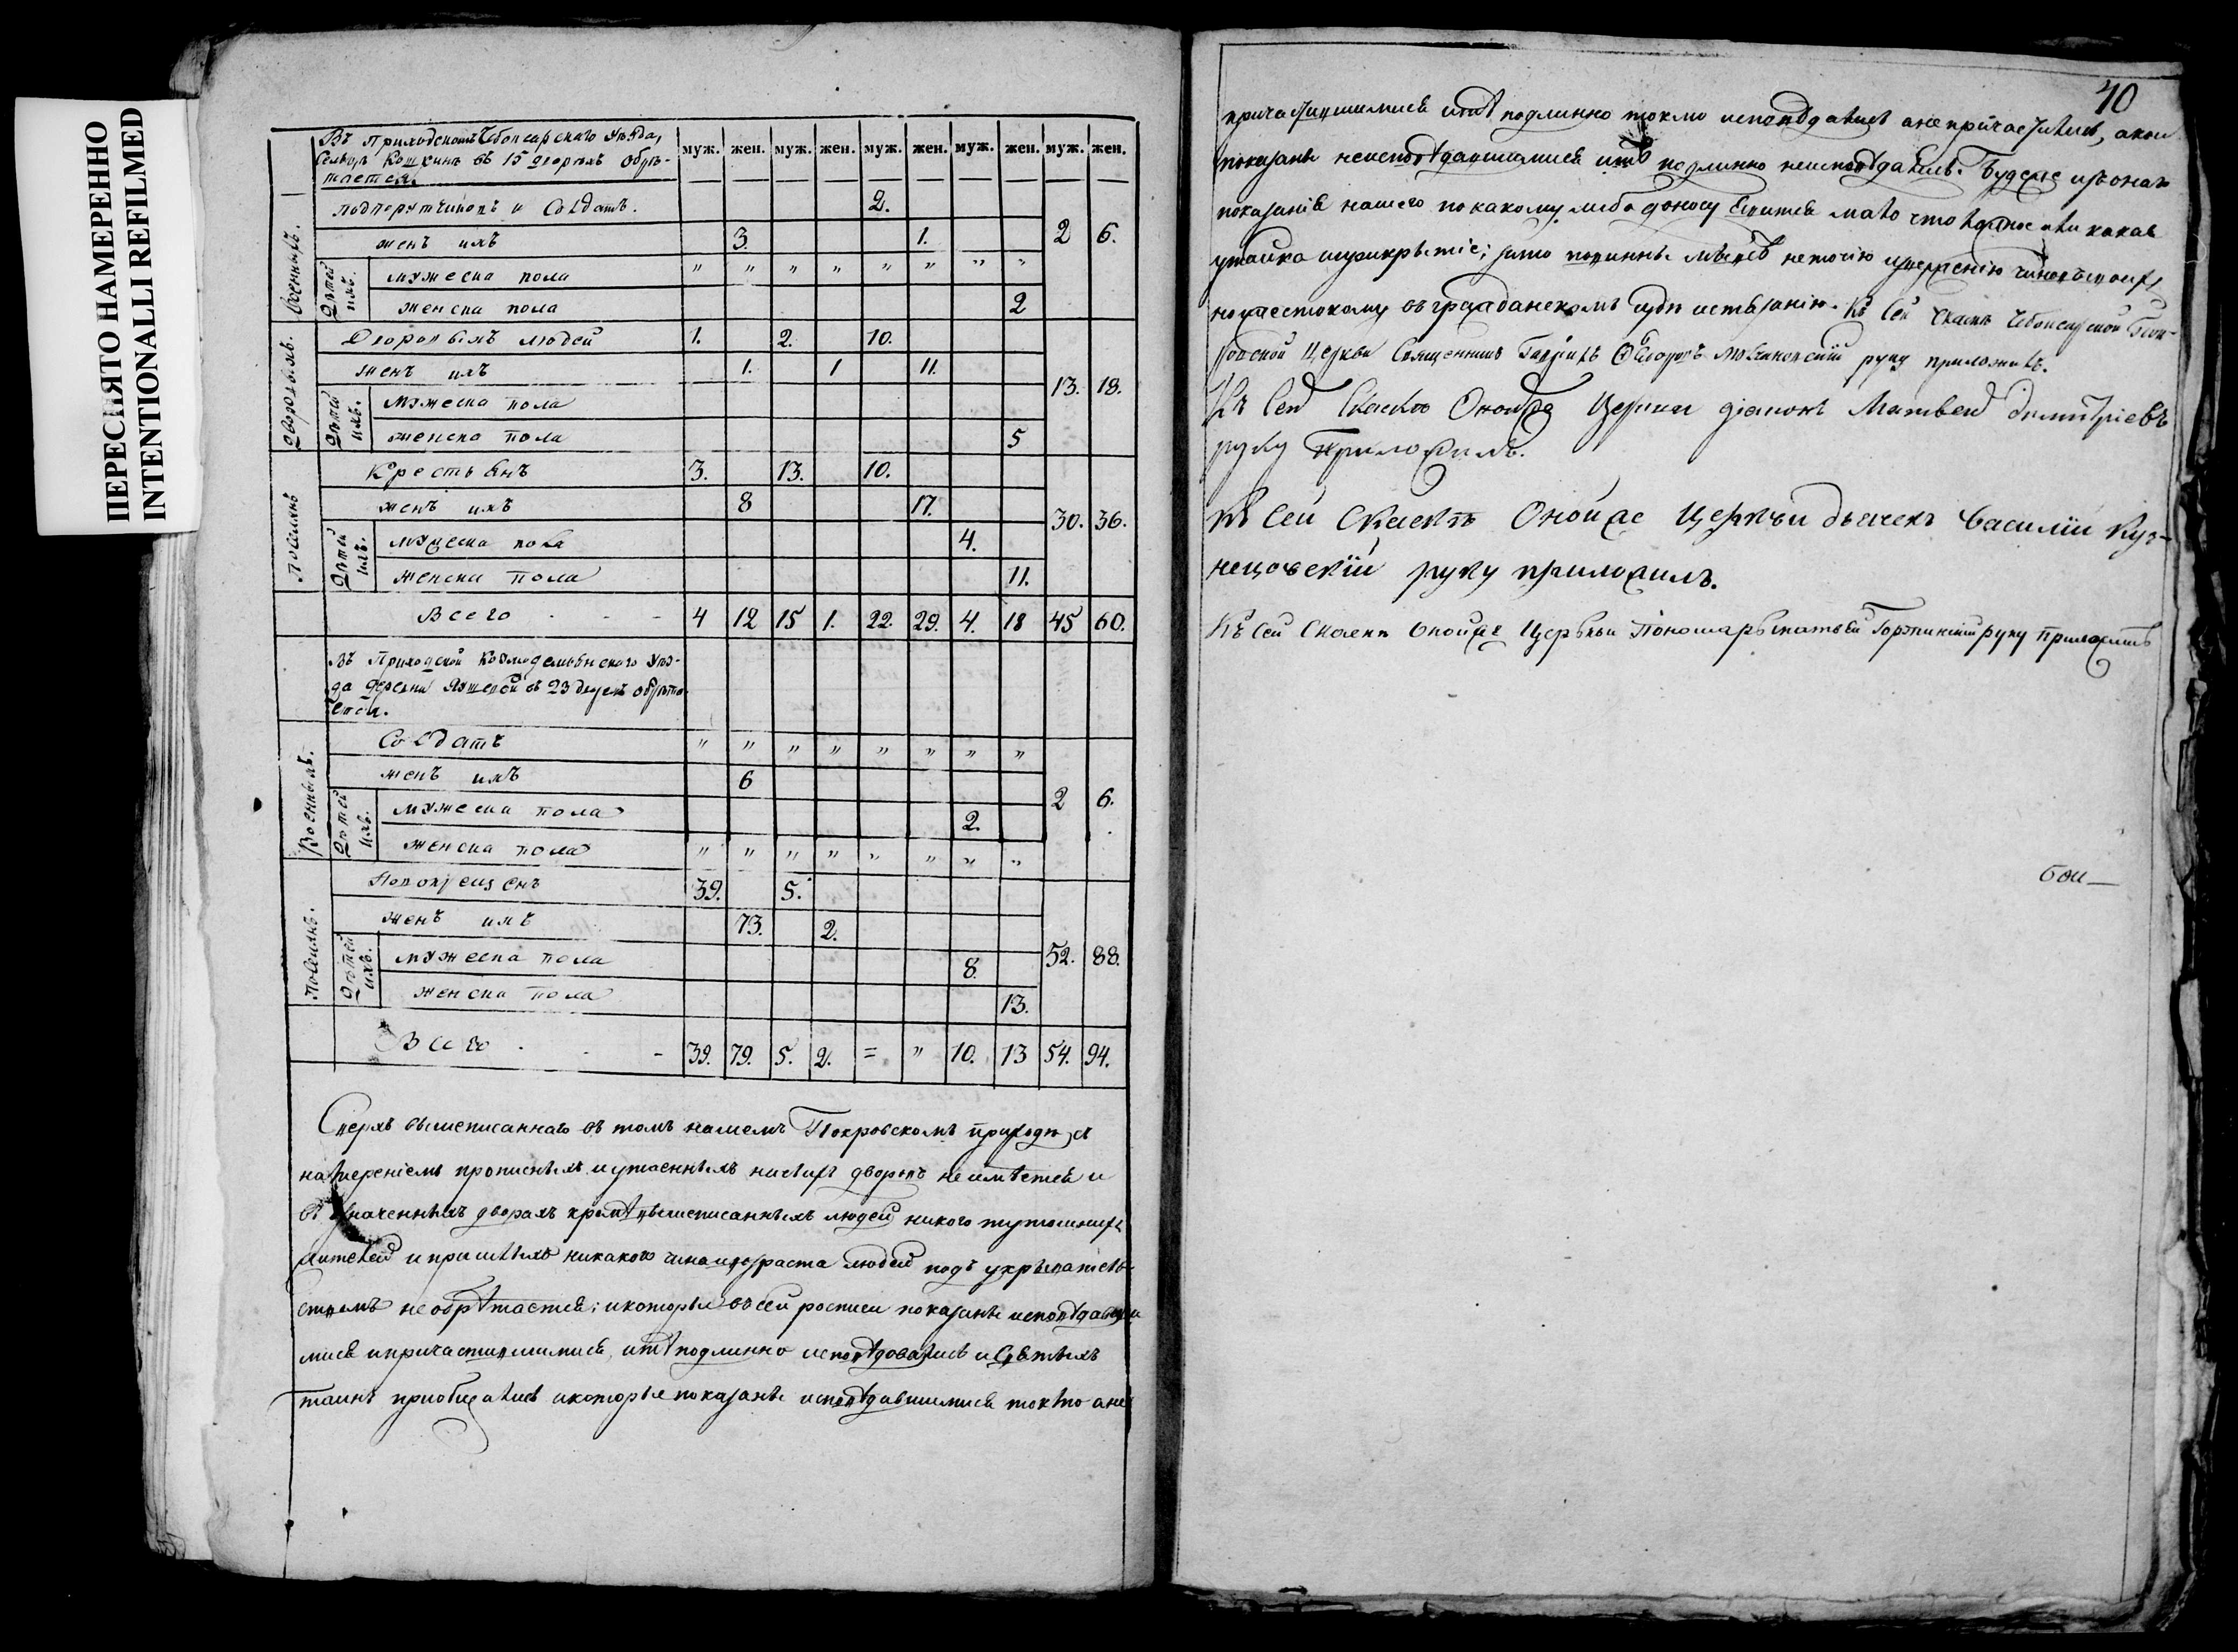 ПЕРЕСНЯТО НАМЕРЕННО
INTENTIONALLI REFILMED
Въ приходскомъ Чебоксарскаго уѣзда,
сельцѣ Кошкинѣ въ 15 дворѣхъ обрѣ-
тается.
муж. жен. муж. жен. муж. жен. муж. жен. муж. жен.
Военныхъ.
подпорутчиковъ и солдатъ. 2.
женъ ихъ 3. 1. 2 6.
Дѣтей ихъ.
мужеска пола „ „ „ „ „ „ „ „
женска пола 2
Дворовыхъ.
Дворовыхъ людей 1. 2. 10.
женъ ихъ 1. 1 11.
13. 18.
Дѣтей ихъ.
мужеска пола
женска пола 5
Поселянъ
Крестьянъ 3. 13. 10.
женъ ихъ 8 17.
30. 36.
Дѣтей ихъ.
мужеска пола 4.
женска пола 11.
Всего - - 4 12 15 1. 22. 29. 4. 18 45 60.
Въ приходской Козмодемьянскаго уѣз-
да деревни въ 23 обрѣта-
ется.
Военныхъ.
Солдатъ „ „ „ „ „ „ „ „
женъ ихъ 6
2 6.
Дѣтей ихъ.
мужеска пола 2.
женска пола „ „ „ „ „ „ „ „
Поселянъ.
Новокрещенъ 39. 5.
женъ ихъ 73. 2.
52. 88.
Дѣтей ихъ.
мужеска пола 8.
женска пола 13.
Всего - 39. 79. 5. 2. = „ 10. 13 54. 94.
Сверхъ вышеписаннаго въ томъ нашемъ Покровскомъ приходѣ съ
намѣреніемъ прописныхъ и утаенныхъ дворовъ неимѣется и
въ означенныхъ дворахъ кромѣ вышеписанныхъ людей никого тутошнихъ
жителей и пришлыхъ никакого чина и возраста людей подъ укрывательст-
ствомъ необрѣтается; и которые въ сей росписи показаны исповѣдавши
мися и причастившимися, и тѣ подлинно исповѣдовались и Святыхъ
таинъ приобщались а которые показаны исповѣдавшимися токмо а не
40
причастившимися и тѣ подлинно токмо исповѣдались а не причастились, а кои
показаны неисповѣдавшимися и тѣ подлинно неисповѣдались. Буде же изъ онаго
показанія нашего по какому либо доносу явится мало что ложное или какая
утайка и прикрытіе; зато повинны мы не точію изверженію чиновъ своихъ
но и жестокому въ гражданскомъ судѣ истязанію. Къ сей скаскѣ Чебоксарской Пок-
ровской церкви священникъ Гаврилъ руку приложилъ.
Къ сей скаске оной же церкви діаконъ Матвей Димитріевъ
руку приложилъ.
Къ сей скаскѣ оной же церкви дьячекъ Василій Куз-
нецовскій руку приложилъ.
Къ сей скаскѣ оной же церкви пономарь руку приложилъ